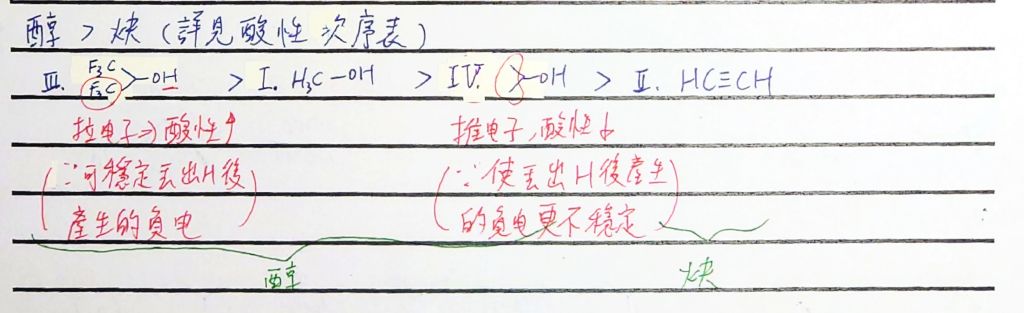 醇 > 炔 (詳見酸性次序表)
III. F₃C F₃C >-OH > I. H₃C-OH > IV. >-OH > II. HC≡CH
拉电子⇒酸性↑ 推电子,酸性↓
(∵可穩定丟出H後 (∵使丟出H後產生
產生的負电) 的負电更不穩定)
醇 炔